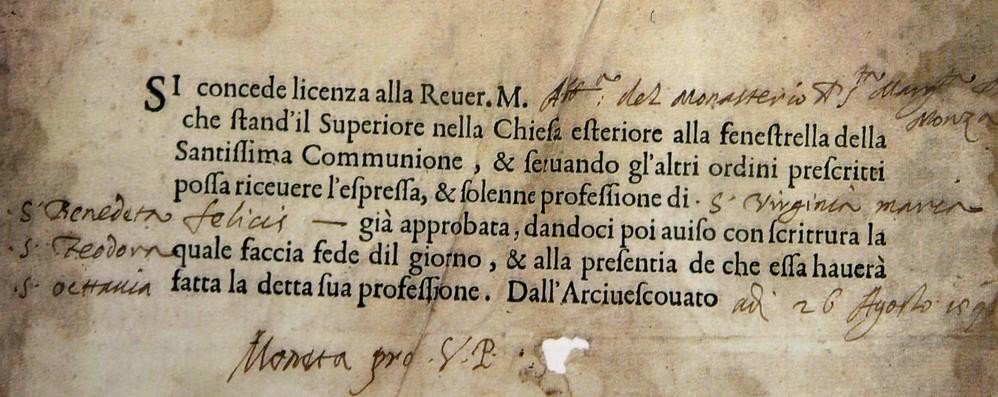 SI concede licenza alla Reuer. M. Abb.ª: del Monasterio di S.ta Marg.ta di
Monza
che ſtand'il Superiore nella Chieſa eſteriore alla feneſtrella della
Santiſſima Communione, & ſeruando gl'altri ordini preſcritti
poſſa riceuere l'eſpreſſa, & ſolenne profeſſione di · S.ʳ Virginia maria
S.ʳ Benedeta felicis — già approbata, dandoci poi auiſo con ſcrittura la
·S.ʳ Teodora quale faccia fede dil giorno, & alla preſentia de che eſſa hauerà
·S.ʳ ottauia fatta la detta ſua profeſſione. Dall'Arciueſcouato adì 26 Agosto
Moneta pro. V.P.